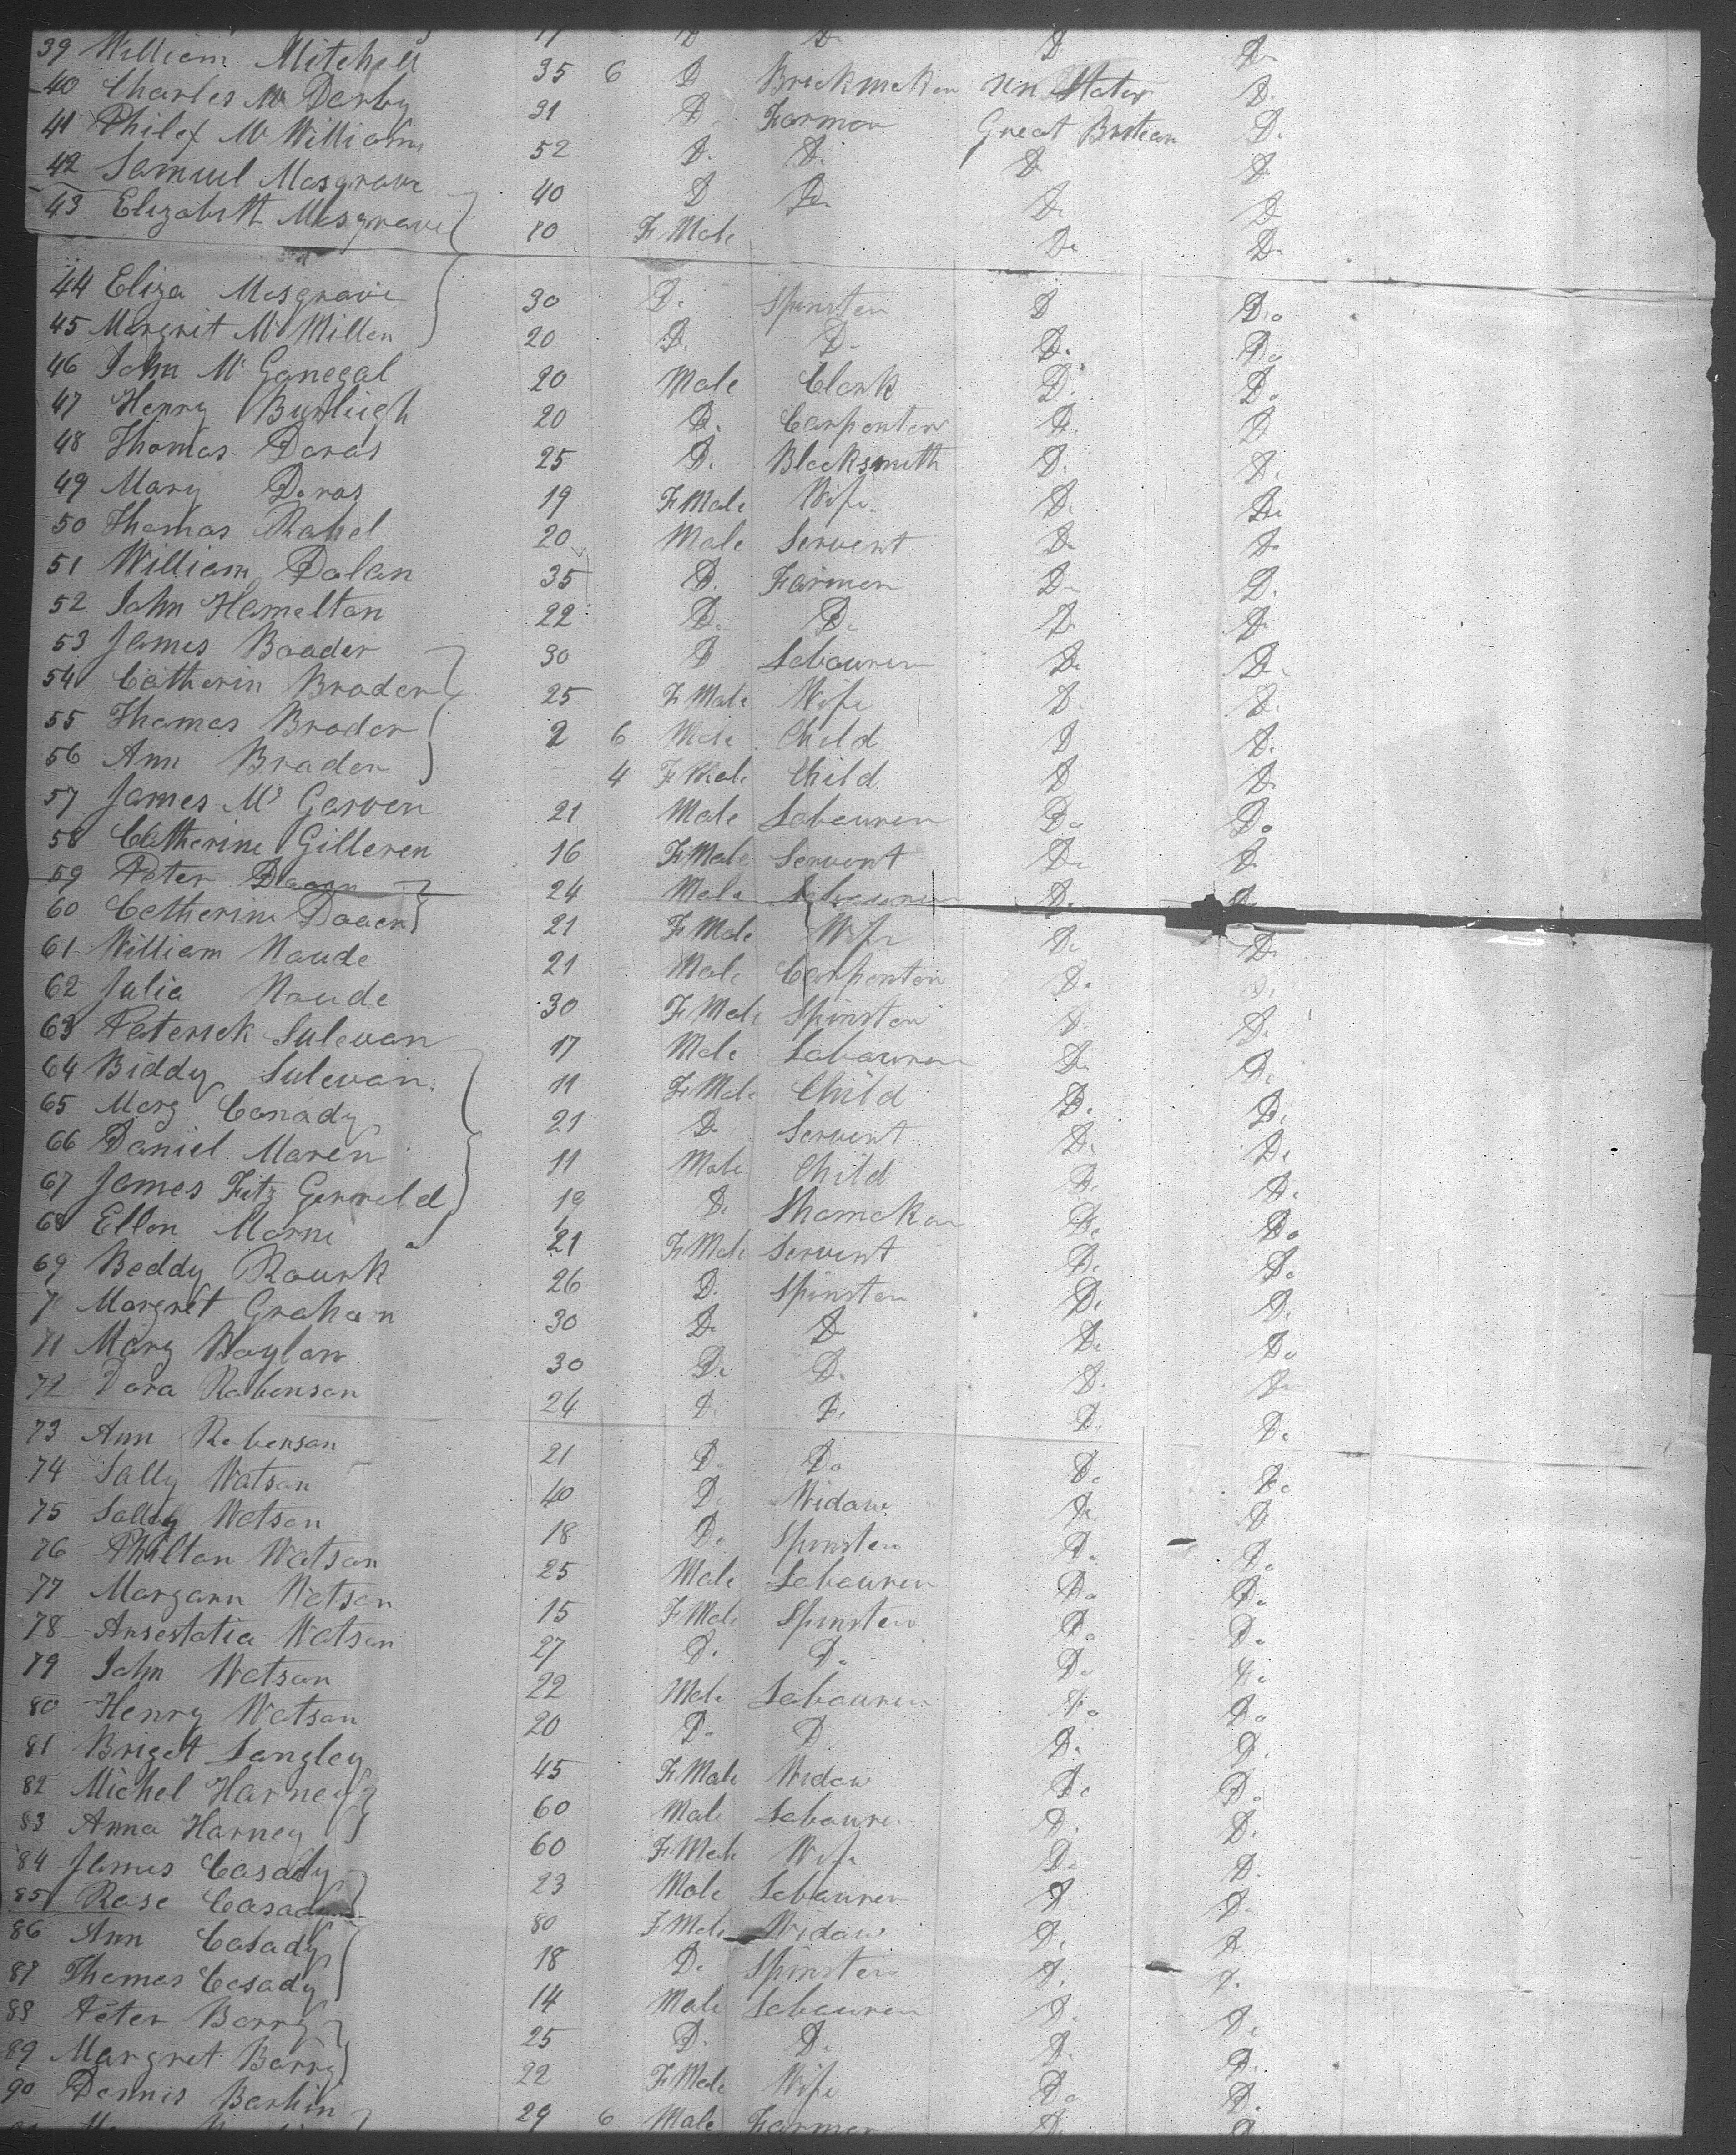 17 D D D D
39 William Mitchell 35 6 D Brickmaker Un States D.
40 Charles Mc Darby 31 D. Farmer Great Britean D.
41 Philex Mc Williams 52 D. D. D D
42 Samuel Masgrave 40 D D D D
43 Elizabith Masgrave 80 F Male D. D.
44 Eliza Masgrave 30 D. Spinster D Do
45 Margrit Mc Millen 20 D. D. D. Do
46 John Mc Gonegal 20 Male Clark D. Do
47 Henry Burleigh 20 D. Carpenter D. D
48 Thomas Doras 25 D. Blacksmith D. D.
49 Mary Doras 19 F Male Wife. D. D.
50 Thomas Rahel 20 Male Servent D. D.
51 William Dolan 35 D. Farmer D. D.
52 John Hamelton 22 D. D. D. D.
53 James Boader 30 D Labourer D. D.
54 Catherin Broder 25 F Male Wife D. D.
55 Thomas Broder 2 6 Male Child D D.
56 Ann Broder 4 F Male Child D. D.
57 James Mc Garven 21 Male Labourer Do Do
58 Catherine Gilleren 16 F Male Servent D. D.
59 Peter 24 Male Labourer D. D.
60 Catherine 21 F Male Wife D. D.
61 William Naude 21 Male Carpenter D. D.
62 Julia Naude 30 F Male Spinster D. D.
63 Peterick Sulevan 17 Male Labourer D. D.
64 Biddy Sulevan 11 F Male Child D. D.
65 Marg Conady 21 D Servent D. D.
66 Daniel Maren 11 Male Child D. D.
67 James Fitz Gerreld 19 D. Shomaker D. Do
68 Ellen Marne 21 F Male Servent D. Do
69 Beddy Rourk 26 D. Spinster D. D.
7 Margret Graham 30 D D D. Do
71 Marg Boylan 30 D. D. D. D.
72 Dora Robenson 24 D. D. D. D.
73 Ann Robenson 21 D. Do D. D.
74 Sally Watson 40 D. Widow D. D
75 Sally Watson 18 D. Spinster D. Do
76 Philton Watson 25 Male Labourer Do D.
77 Margann Watson 15 F Male Spinster Do Do
78 Ansestatia Watson 27 D. D. Do Do
79 John Watson 22 Male Labourer Do Do
80 Henry Watson 20 Do D D. D.
81 Briget Langley 45 F Male Widow Do Do
82 Michel Harney 60 Male Labourer D. D.
83 Anna Harney 60 F Male Wife D. D.
84 James Casady 23 Male Labourer D. D.
85 Rose Casady 80 F Male Widow D. D
86 Ann Casady 18 D. Spinster D. D.
87 Thomas Casady 14 Male Labourer D. D.
88 Peter Barry 25 D. D. D. D.
89 Margret Barry 22 F Male Wife Do D.
90 Dennis Barkin 29 6 Male Farmer D. D